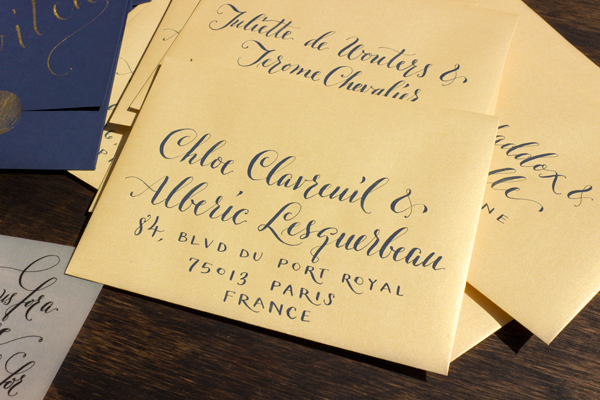 Juliette de Wouters &
Jerome Chevalier
Chloe Clavreuil &
Alberic Lesquerbeau
84, BLVD DU PORT ROYAL
75013 PARIS
FRANCE
addox &
lle
NE